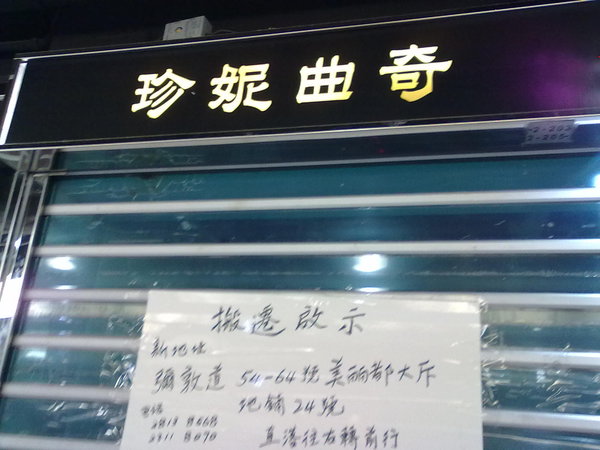 珍妮曲奇
搬遷啟示
新地址
彌敦道 54-64號美丽都大斤
地鋪24號
電話
直落往右轉前行